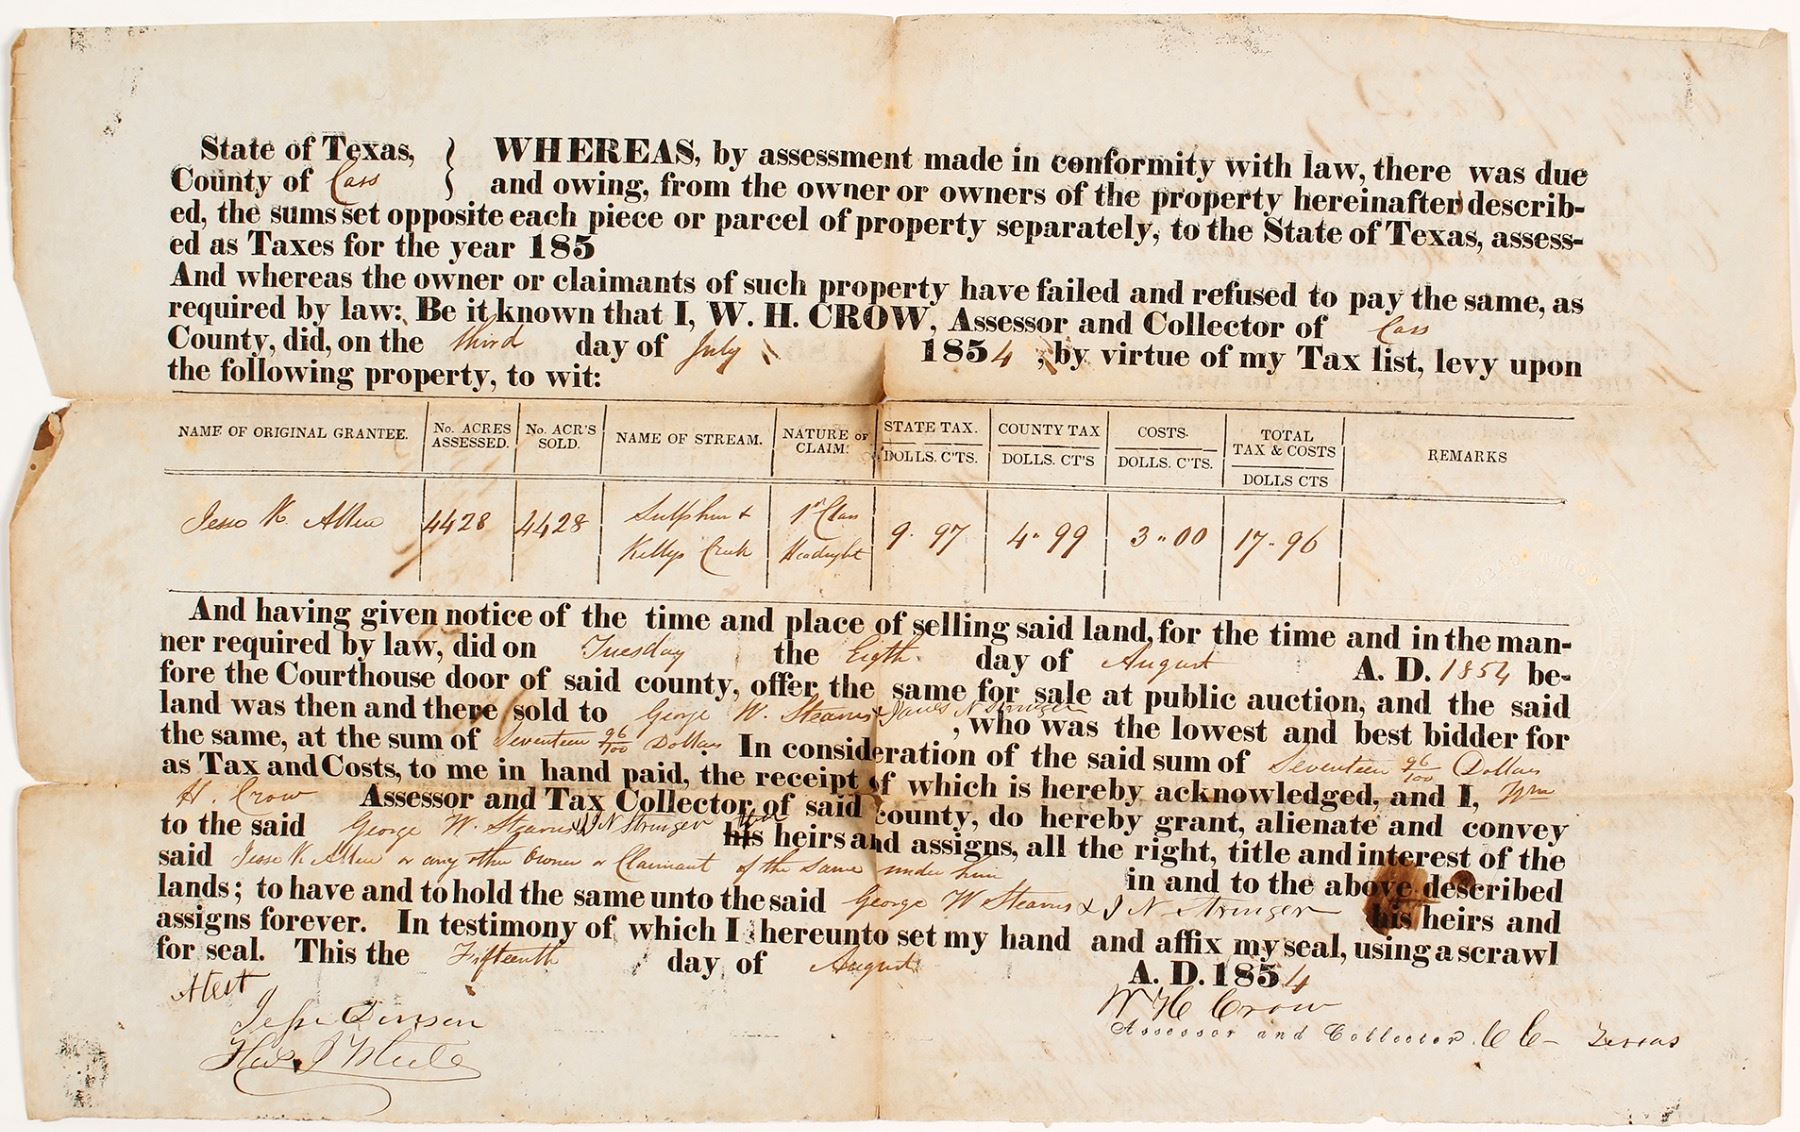 State of Texas, } WHEREAS, by assessment made in conformity with law, there was due
County of Cass } and owing, from the owner or owners of the property hereinafter describ-
ed, the sums set opposite each piece or parcel of property separately, to the State of Texas, assess-
ed as Taxes for the year 185
And whereas the owner or claimants of such property have failed and refused to pay the same, as
required by law: Be it known that I, W. H. CROW, Assessor and Collector of Cass
County, did, on the third day of July 1854, by virtue of my Tax list, levy upon
the following property, to wit:
NAME OF ORIGINAL GRANTEE. No. ACRES ASSESSED. No. ACR'S SOLD. NAME OF STREAM. NATURE OF CLAIM. STATE TAX. DOLLS. C'TS. COUNTY TAX DOLLS. CT'S COSTS. DOLLS. C'TS. TOTAL TAX & COSTS DOLLS CTS REMARKS
Jesse K. Allen 4428 4428 Sulphur & Kellys Creek 1st Class Headright 9.97 4"99 3"00 17-96
And having given notice of the time and place of selling said land, for the time and in the man-
ner required by law, did on Tuesday the Eigth day of August A. D. 1854 be-
fore the Courthouse door of said county, offer the same for sale at public auction, and the said
land was then and there sold to George W. Stearns & James N Stringer, who was the lowest and best bidder for
the same, at the sum of Seventeen 96/100 Dollars In consideration of the said sum of Seventeen 96/100 Dollars
as Tax and Costs, to me in hand paid, the receipt of which is hereby acknowledged, and I, Wm
H. Crow Assessor and Tax Collector of said county, do hereby grant, alienate and convey
to the said George W. Stearns & J N Stringer his heirs and assigns, all the right, title and interest of the
said Jesse K Allen or any other Owner or Claimant of the Same under him in and to the above described
lands; to have and to hold the same unto the said George W Stearns & J N Stringer his heirs and
assigns forever. In testimony of which I hereunto set my hand and affix my seal, using a scrawl
for seal. This the Fifteenth day of August A. D. 1854
Attest
W H Crow
Jesse
Assessor and Collector C C Texas